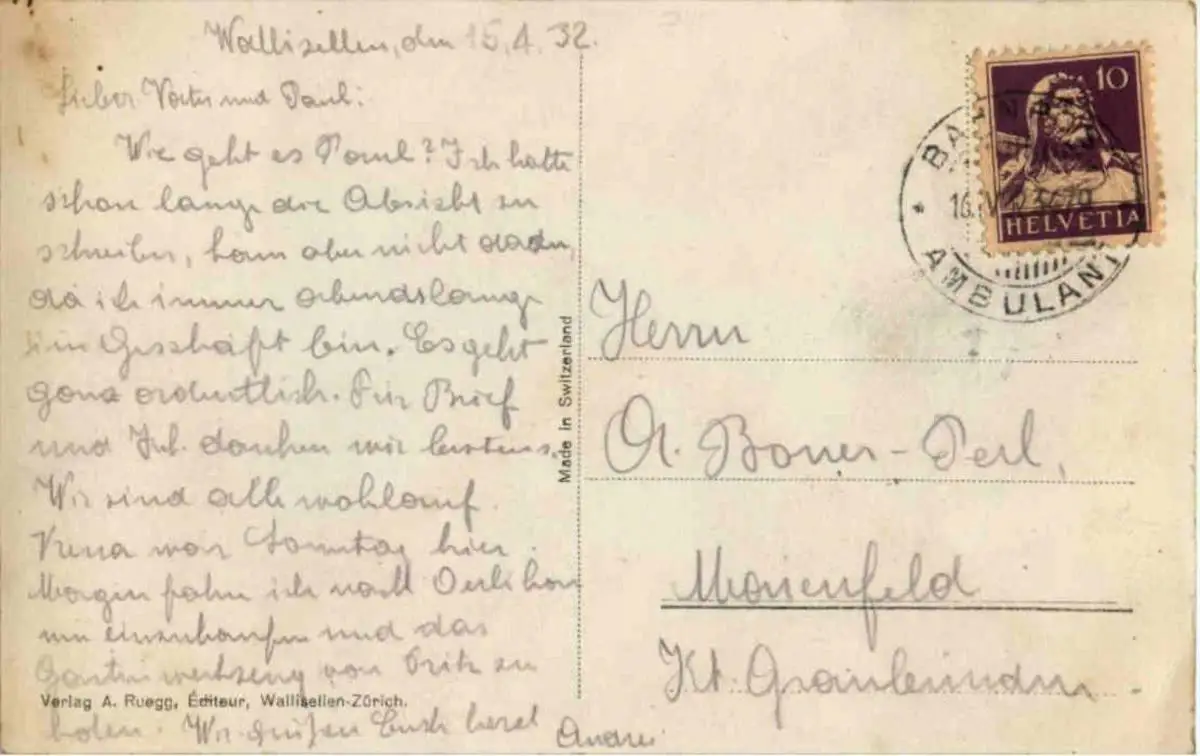 Wallisellen, den 15.4.32.
Lieber Vater und Paul:
Wie geht es Paul? Ich hatte
schon lange die Absicht zu
schreiben, kam aber nicht dazu,
da ich immer abends lange
im Geschäft bin. Es geht
ganz ordentlich. Für Brief
und danken wir bestens.
Wir sind alle wohlauf.
war Sonntag hier.
Morgen fahre ich nach Oerlikon
um einzukaufen und das
Gartenwerkzeug von Fritz zu
holen. Wir grüßen Euch herzl
Verlag A. Ruegg, Éditeur, Wallisellen-Zürich.
Made in Switzerland
10
HELVETIA
AMBULANT
Herrn
A. Boner-
Maienfeld
Kt. Graubünden